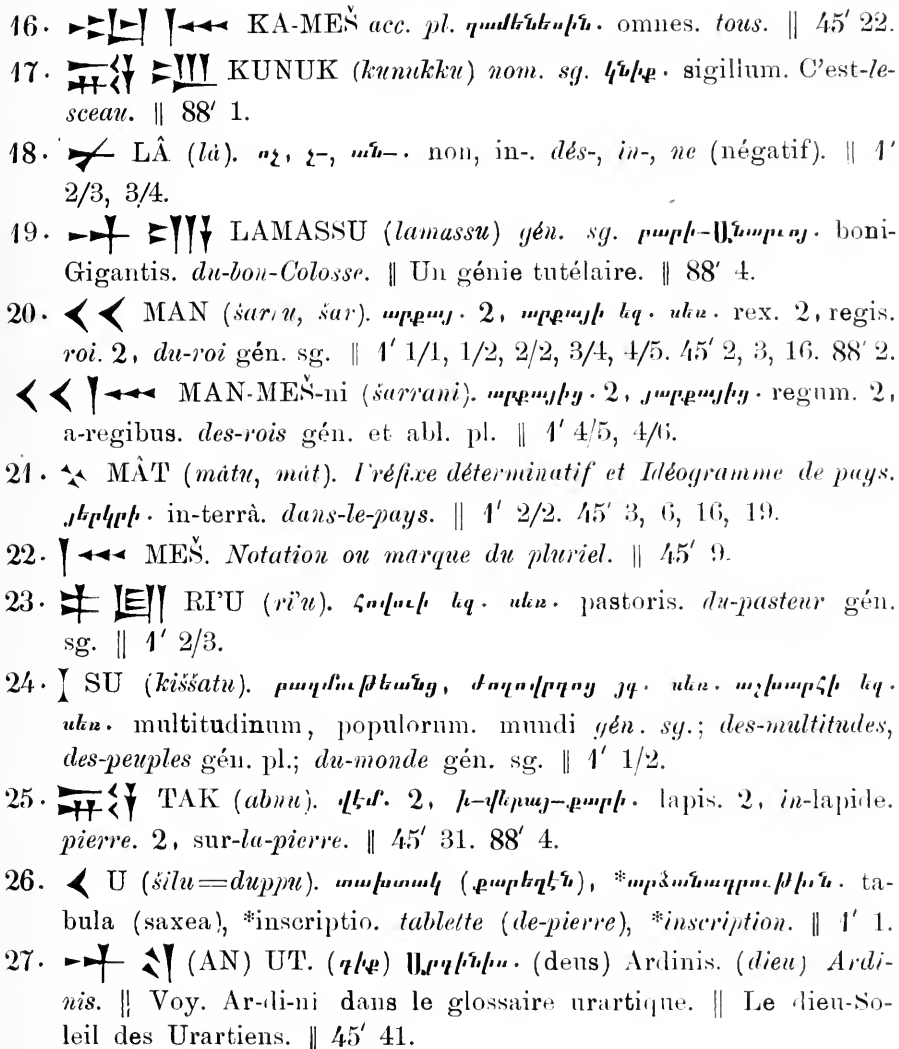 16. 𒅗 𒈨𒌍 KA-MEŠ acc. pl. զամենեսին. omnes. tous. || 45′ 22.
17. KUNUK (kunukku) nom. sg. կնիք. sigillum. C'est-le-
sceau. || 88′ 1.
18. 𒉡 LÂ (lâ). ոչ, չ-, ան-. non, in-. dés-, in-, ne (négatif). || 1′
2/3, 3/4.
19. 𒀭 𒆗 LAMASSU (lamassu) gén. sg. բարի- boni-
Gigantis. du-bon-Colosse. || Un génie tutélaire. || 88′ 4.
20. 𒌋 𒌋 MAN (šarru, šar). արքայ. 2, արքայի եզ. սեռ. rex. 2, regis.
roi. 2, du-roi gén. sg. || 1′ 1/1, 1/2, 2/2, 3/4, 4/5. 45′ 2, 3, 16. 88′ 2.
𒌋 𒌋 𒈨𒌍 MAN-MEŠ-ni (šarrani). արքայից. 2, յարքայից. regum. 2,
a-regibus. des-rois gén. et abl. pl. || 1′ 4/5, 4/6.
21. 𒆳 MÂT (mâtu, mât). Préfixe déterminatif et Idéogramme de pays.
յերկրի. in-terrâ. dans-le-pays. || 1′ 2/2. 45′ 3, 6, 16, 19.
22. 𒈨𒌍 MEŠ. Notation ou marque du pluriel. || 45′ 9.
23. 𒉺 𒇻 RI'U (ri'u). հովուի եզ. սեռ. pastoris. du-pasteur gén.
sg. || 1′ 2/3.
24. SU (kiššatu). բազմութեանց, ժողովրդոց յգ. սեռ. աշխարհի եզ.
սեռ. multitudinum, populorum. mundi gén. sg.; des-multitudes,
des-peuples gén. pl.; du-monde gén. sg. || 1′ 1/2.
25. TAK (abnu). վէմ. 2, ի-վերայ-քարի. lapis. 2, in-lapide.
pierre. 2, sur-la-pierre. || 45′ 31. 88′ 4.
26. 𒌋 U (šilu=duppu). տախտակ (քարեղէն), *արձանագրութիւն. ta-
bula (saxea), *inscriptio. tablette (de-pierre), *inscription. || 1′ 1.
27. 𒀭 𒌓 (AN) UT. (դիք) Արդինիս. (deus) Ardinis. (dieu) Ardi-
nis. || Voy. Ar-di-ni dans le glossaire urartique. || Le dieu-So-
leil des Urartiens. || 45′ 41.